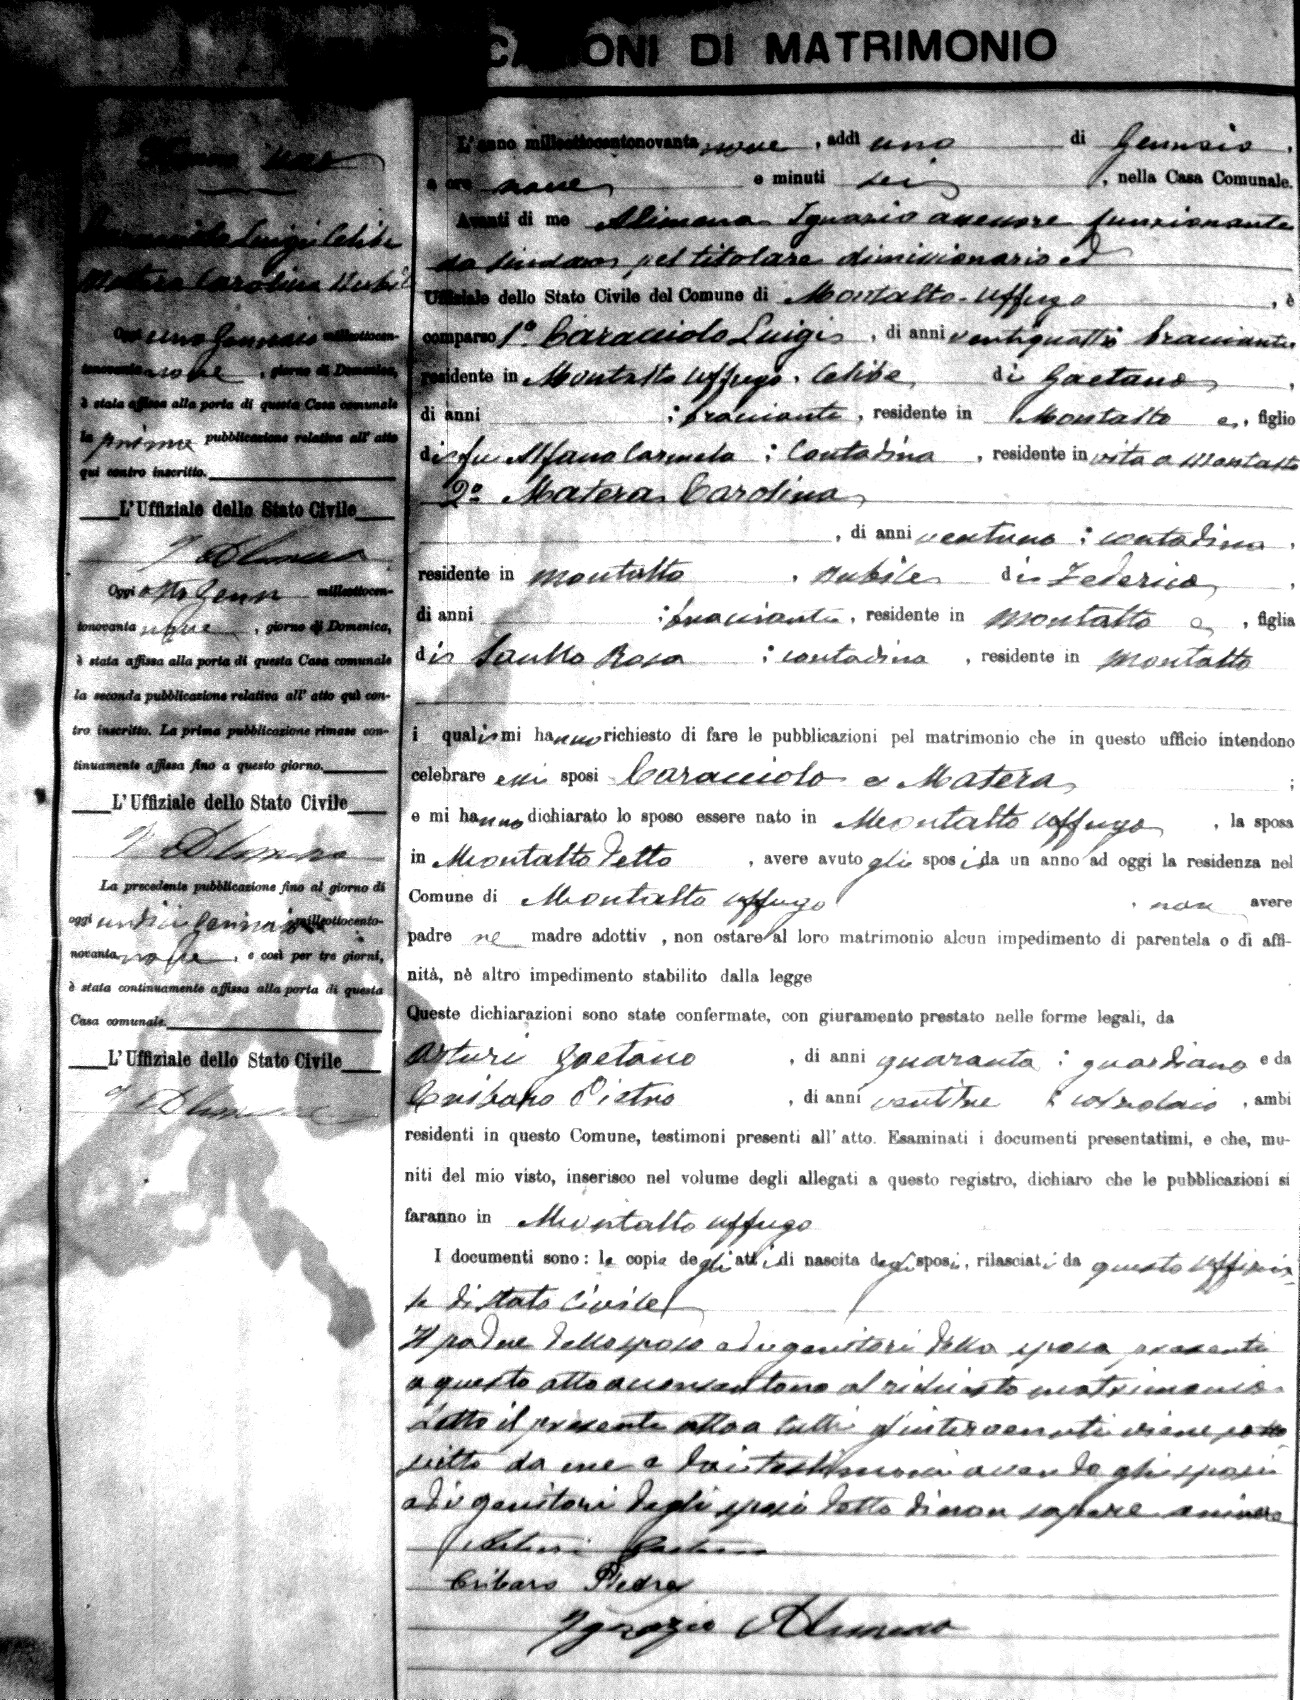 CAZIONI DI MATRIMONIO
Numero uno
Caracciolo Luigi Celibe
Matera Carolina Nubile
Oggi uno Gennaio milleottocen-
tonovanta nove, giorno di Domenica,
è stata affissa alla porta di questa Casa comunale
la prima pubblicazione relativa all' atto
qui contro inscritto.
L'Uffiziale dello Stato Civile
I Alimena
Oggi otto Genn milleottocen-
tonovanta nove, giorno di Domenica,
è stata affissa alla porta di questa Casa comunale
la seconda pubblicazione relativa all' atto quì con-
tro inscritto. La prima pubblicazione rimase con-
tinuamente affissa fino a questo giorno.
L'Uffiziale dello Stato Civile
I Alimena
La precedente pubblicazione fino al giorno di
oggi undici Gennaio milleottocento-
novanta nove, e così per tre giorni,
è stata continuamente affissa alla porta di questa
Casa comunale.
L'Uffiziale dello Stato Civile
I Alimena
L'anno milleottocentonovanta nove, addì uno di Gennaio,
a ore nove e minuti sei, nella Casa Comunale.
Avanti di me Alimena Ignazio assessore funzionante
da sindaco pel titolare dimissionario ed
Uffiziale dello Stato Civile del Comune di Montalto-Uffugo, è
comparso 1º Caracciolo Luigi, di anni ventiquattro bracciante
residente in Montalto Uffugo, Celibe di Gaetano,
di anni ; bracciante, residente in Montalto e, figlio
di fu Alfano Carmela ; Contadina, residente in vita a Montalto
2º Matera Carolina
, di anni ventuno ; contadina,
residente in Montalto, nubile di Federico,
di anni ; bracciante, residente in Montalto e, figlia
di Saullo Rosa ; contadina, residente in Montalto
i quali mi hanno richiesto di fare le pubblicazioni pel matrimonio che in questo ufficio intendono
celebrare essi sposi Caracciolo e Matera ;
e mi hanno dichiarato lo sposo essere nato in Montalto Uffugo, la sposa
in Montalto detto, avere avuto gli sposi da un anno ad oggi la residenza nel
Comune di Montalto Uffugo, non avere
padre nè madre adottiv , non ostare al loro matrimonio alcun impedimento di parentela o di affi-
nità, nè altro impedimento stabilito dalla legge
Queste dichiarazioni sono state confermate, con giuramento prestato nelle forme legali, da
Arturi Gaetano, di anni quaranta ; guardiano e da
Cribaro Pietro, di anni ventitre ; , ambi
residenti in questo Comune, testimoni presenti all' atto. Esaminati i documenti presentatimi, e che, mu-
niti del mio visto, inserisco nel volume degli allegati a questo registro, dichiaro che le pubblicazioni si
faranno in Montalto Uffugo
I documenti sono: le copie degli atti di nascita degli sposi, rilasciati da questo Uffizia-
le di stato Civile
Il padre dello sposo ed i genitori della sposa presenti
a questo atto acconsentono al richiesto matrimonio
Letto il presente atto a tutti gl'intervenuti viene sotto
scritto da me e dai testimoni avendo gli sposi
ed i genitori degli sposi detto di non sapere firmare
Arturi Gaetano
Cribaro Pietro
Ignazio Alimena